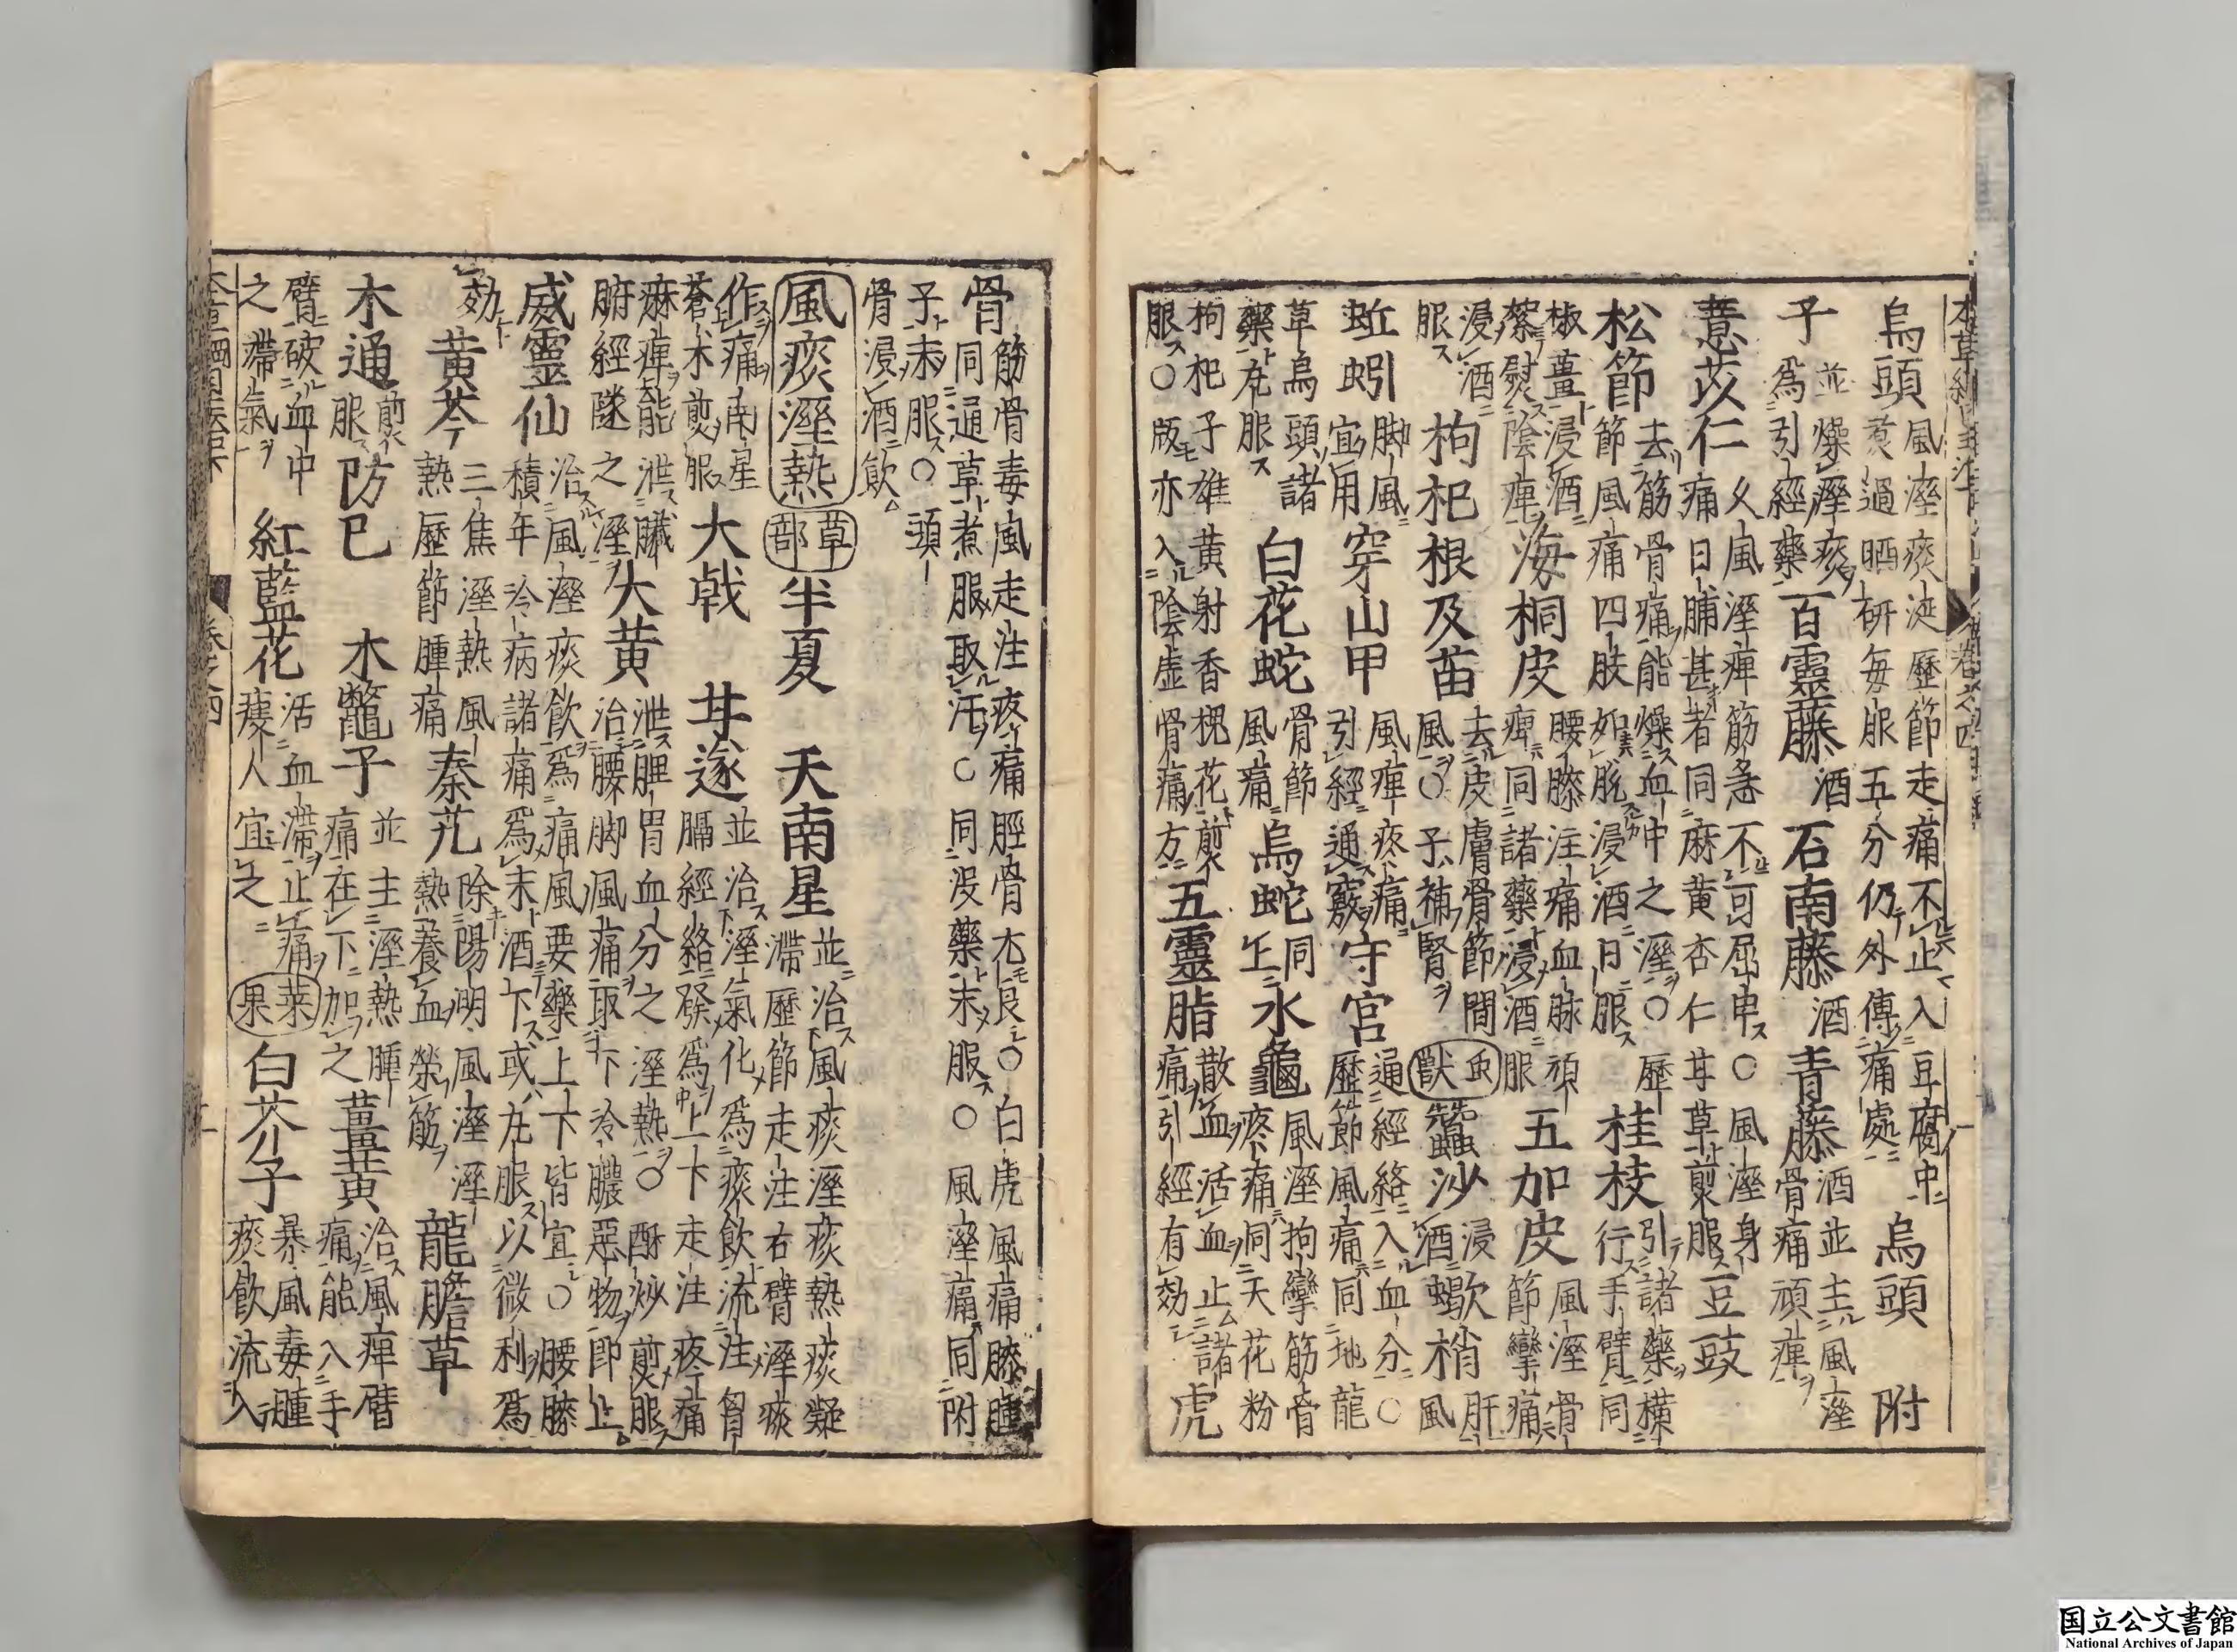 烏頭風溼痰涎歷節走痛不止入豆腐中煑過晒研每服五分仍外傅痛處烏頭附
子並燥溼痰爲引經藥百靈藤酒石南藤酒青藤酒並主風溼骨痛頑痺
薏苡仁久風溼痺筋急不可屈申○風溼身痛日晡甚者同麻黄杏仁甘草煎服豆豉
松節去筋骨痛能燥血中之溼○歷節風痛四肢如脫浸酒日服桂枝引諸藥橫行手臂同
椒薑浸酒絮熨陰痺海桐皮腰膝注痛血脉頑痺同諸藥浸酒服五加皮風溼骨節攣痛
浸酒服枸杞根及苗去皮膚骨節間風○子補腎虫獸蠶沙浸酒蝎梢肝風
蚯蚓脚風宜用穿山甲風痺疼痛引經通竅守宮通經絡入血分○歷節風痛同地龍
草烏頭諸藥丸服白花蛇骨節風痛烏蛇同上水龜風溼拘攣筋骨疼痛同天花粉
枸杞子雄黄射香槐花煎服○版亦入陰虛骨痛方五靈脂散血活血止諸痛引經有効虎
骨筋骨毒風走注疼痛脛骨尤良○白虎風痛膝腫同通草煮服取汗○同没藥末服○風溼痛同附
子末服○頭骨浸酒飲
風痰溼熱草部半夏天南星並治風痰溼痰熱痰凝滯歷節走注右臂溼痰
作痛南星蒼木煎服大戟甘遂並治溼氣化爲痰飲流注胷膈經絡發爲上下走注疼痛
麻痺能泄臟腑經隧之溼大黄泄脾胃血分之溼熱○酥炒煎服治腰脚風痛取下冷膿惡物即止
威靈仙治風溼痰飲爲痛風要藥上下皆宜○腰膝積年冷病諸痛爲末酒下或丸服以微利爲
効黄芩三焦溼熱風熱歷節腫痛秦艽除陽明風溼溼熱養血榮筋龍膽草
木通煎服防已木鼈子並主溼熱腫痛在下加之薑黄治風痺臂痛能入手
臂破血中之滯氣紅藍花活血滯止痛瘦人宜之菜果白芥子暴風毒腫痰飲流入
卷之四
国立公文書館
National Archives of Japan